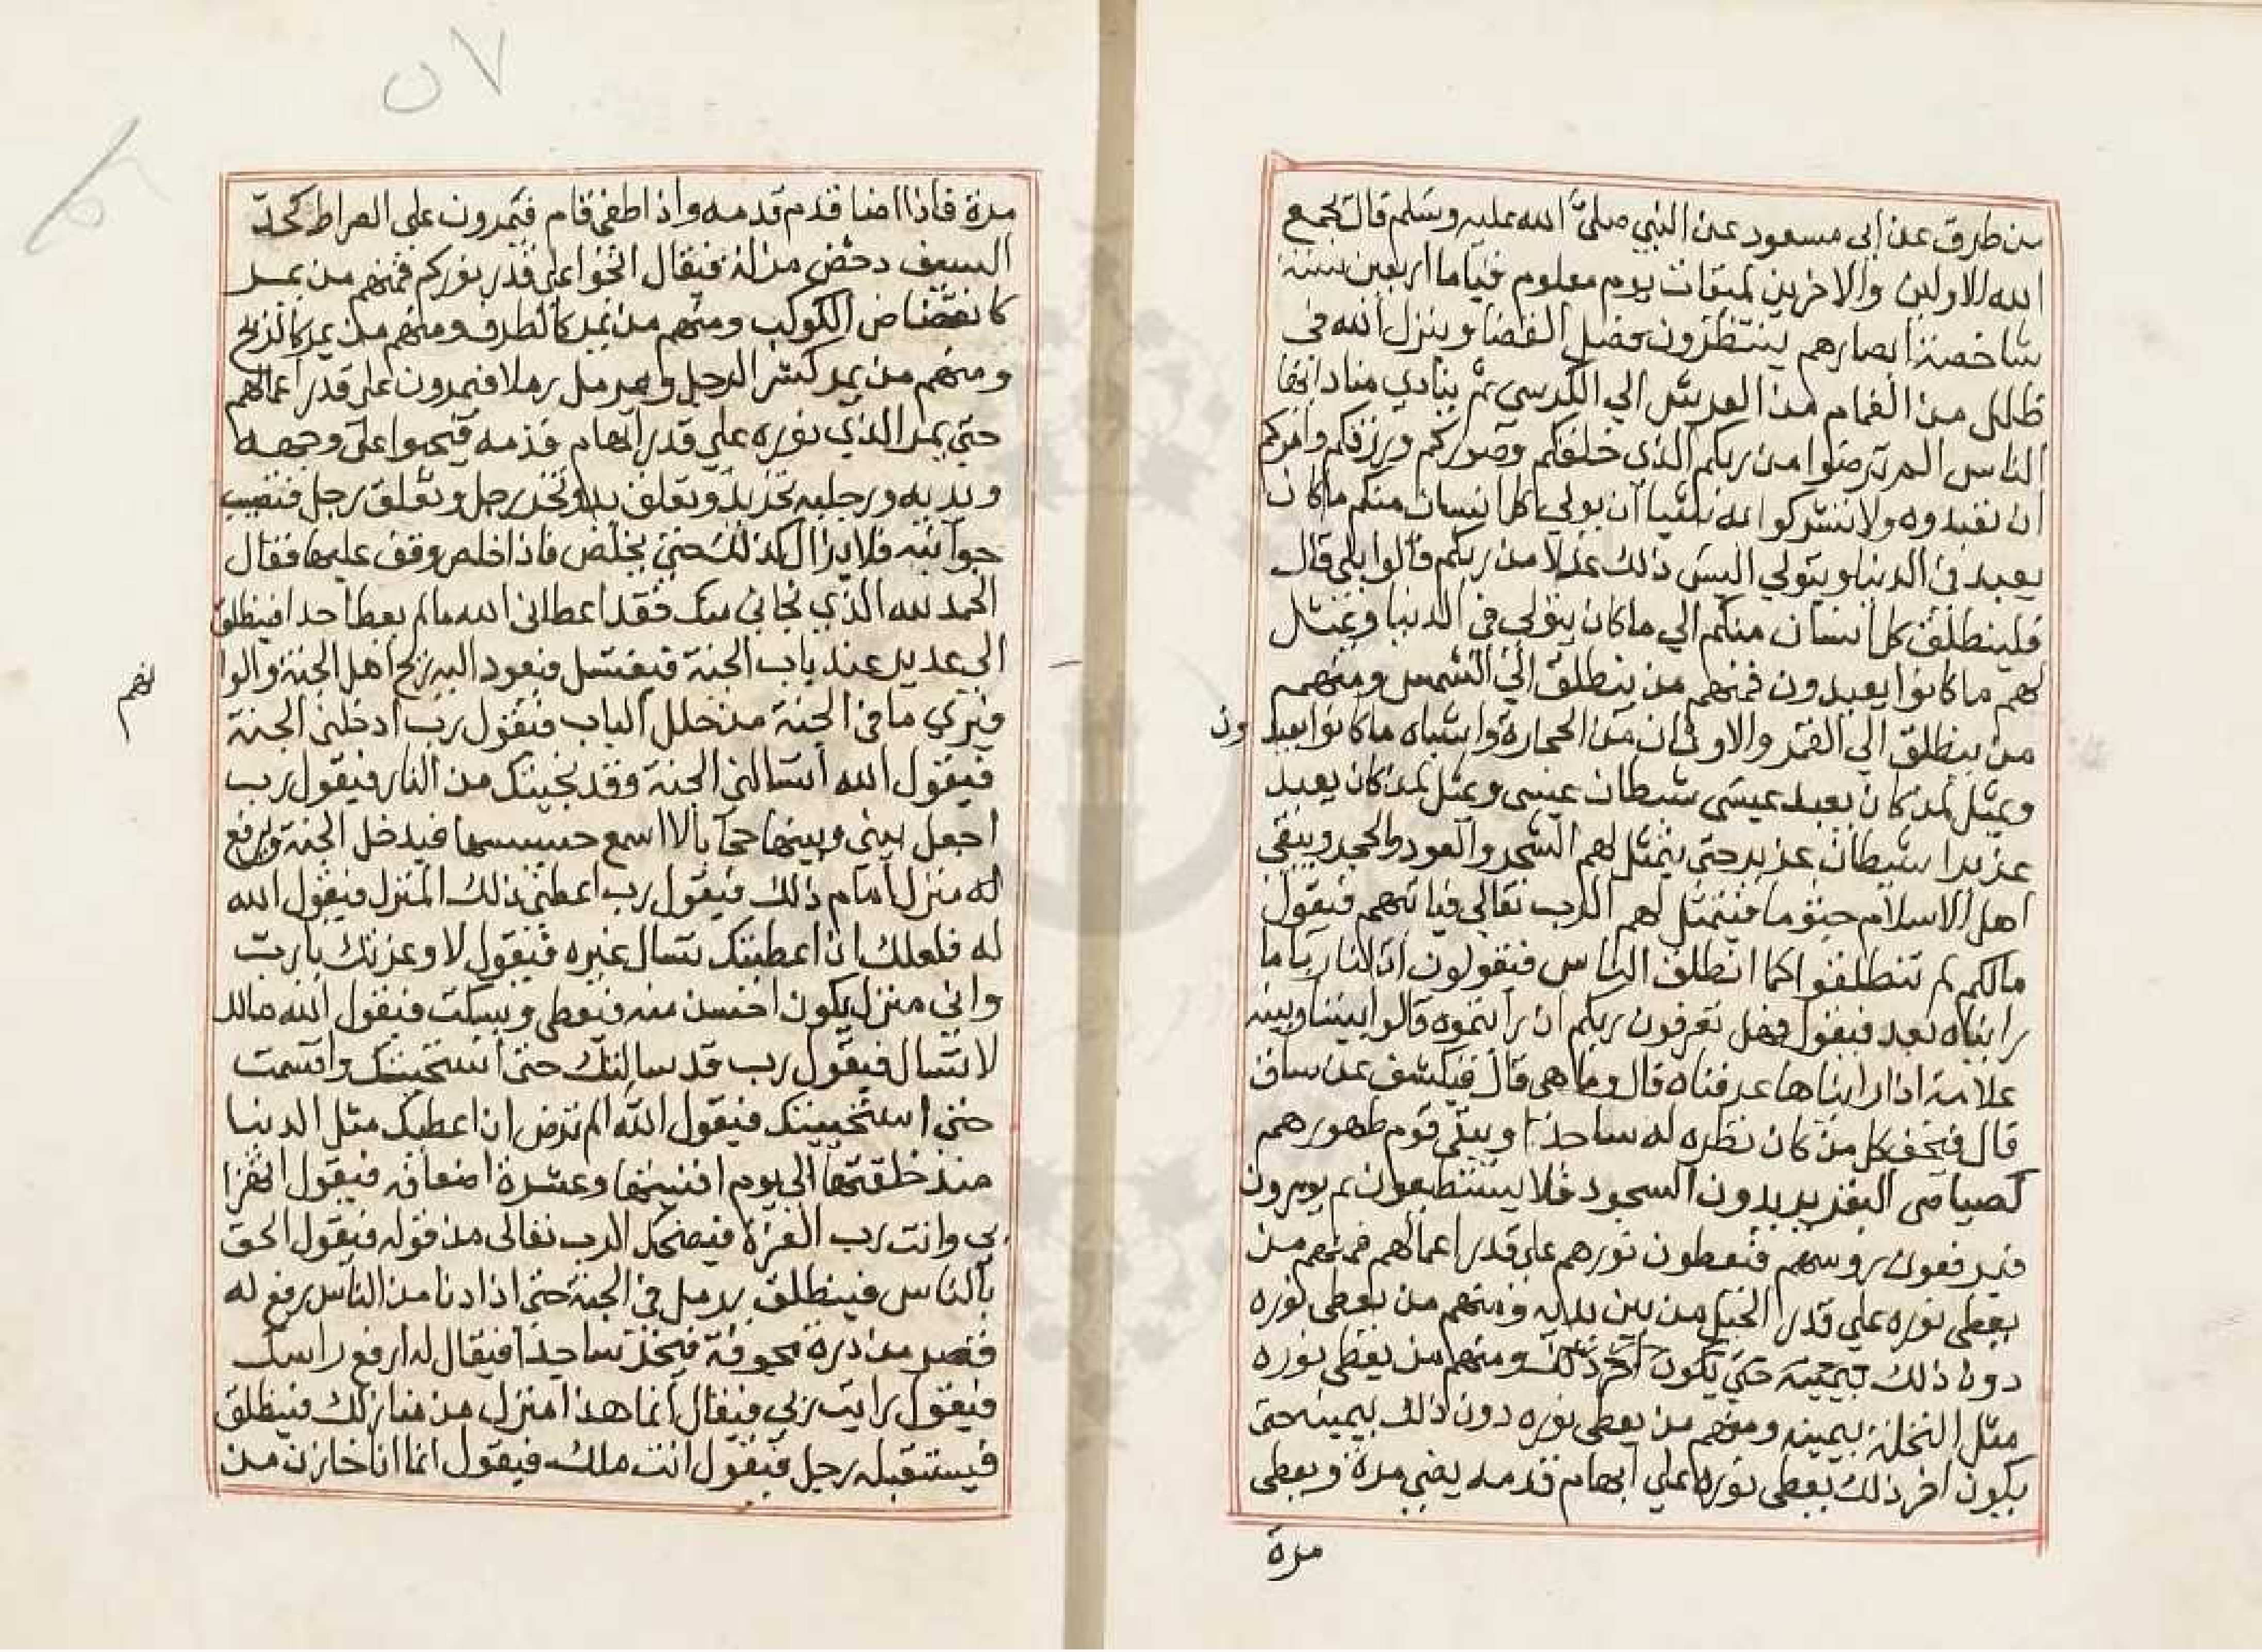 من طرق عن ابى مسعود عن النبي صلى الله عليه وسلم قال يجمع
الله الاولين والاخرين لميقات يوم معلوم قياما اربعين سنة
شاخصة ابصارهم ينتظرون فصل القضا وينزل الله فى
ظلل من الغمام من العرش الي الكرسي ثم ينادي مناد ايها
الناس الم ترضوا من ربكم الذي خلقكم وصوركم ورزقكم وامركم
ان تعبدوه ولا تشركوا به شيا ان يولي كل انسان منكم ما كان
يعبد فى الدنيا ويتولي اليس ذلك عدلا من ربكم قالوا بلي قال
فلينطلق كل انسان منكم الي ما كان يتولي في الدنيا ويمثل
لهم ما كانوا يعبدون فمنهم من ينطلق الي الشمس ومنهم
من ينطلق الي القمر والاوثان من الحجارة واشباه ما كانوا يعبدون
ويمثل لمن كان يعبد عيسى شيطان عيسى ويمثل لمن كان يعبد
عزيرا شيطان عزير حتى يمثل لهم الشجر والعود والحجر ويبقى
اهل الاسلام جثوما فيتمثل لهم الرب تعالى فياتيهم فيقول
مالكم لم تنطلقوا كما انطلق الناس فيقولون ان لنا ربا ما
راينـاه بعد فيقول فهل تعرفون ربكم ان رايتموه قالوا بيننا وبينه
علامة اذا رايناها عرفناه قال وما هى قال فيكشف عن ساق
قال فيخر كل من كان نظره له ساجدا ويبقى قوم ظهورهم
كصياصى البقر يريدون السجود فلا يستطيعون ثم يومرون
فيرفعون روسهم فيعطون نورهم علي قدر اعمالهم فمنهم من
يعطى نوره علي قدر الجبل من بين يديه ومنهم من يعطى نوره
دون ذلك بيمينه حتي يكون اخر ذلك ومنهم من يعطى نوره
مثل النخلة بيمينه ومنهم من يعطى نوره دون ذلك بيمينه حتى
يكون اخر ذلك يعطى نوره علي ابهام قدمه يضي مرة ويطفى
مرة
٥٧
مرة فاذا اضا قدم قدمه واذا طفى قام فيمرون علي الصراط كحد
السيف دحض مزلة فيقال انجوا على قدر نوركم فمنهم من يمر
كانقضاض الكوكب ومنهم من يمر كالطرف ومنهم من يمر كالريح
ومنهم من يمر كشد الرجل ويرمل رملا فيمرون على قدر اعمالهم
حتي يمر الذي نوره علي قدر ابهام قدمه فيحبوا على وجهه
ويديه ورجليه تخر يد وتعلق يد وتخر رجل وتعلق رجل فتصيب
جوانبه فلا يزال كذلك حتى يخلص فاذا خلص وقف عليها فقال
الحمد لله الذي نجانى منك فقد اعطانى الله مالم يعط احدا فينطلق
الى غدير عند باب الجنة فيغتسل فيعود اليه ريح اهل الجنة والوا
نهم
فيري ما فى الجنة من خلل الباب فيقول رب ادخلنى الجنة
فيقول الله أتسالني الجنة وقد نجيتك من النار فيقول رب
اجعل بينى وبينها حجابا لا اسمع حسيسها فيدخل الجنة ويرفع
له منزل امام ذلك فيقول رب اعطني ذلك المنزل فيقول الله
له فلعلك ان اعطيتك تسال غيره فيقول لا وعزتك يا رب
واني منزل يكون احسن منه فيعطى ويسكت فيقول الله مالك
لا تسال فيقول رب قد سالتك حتى استحييتك واقسمت
حتى استحييتك فيقول الله الم ترض ان اعطيك مثل الدنيا
منذ خلقتها الى يوم افنيتها وعشرة اضعافه فيقول اتهزا
بي وانت رب العزة فيضحك الرب تعالى من قوله فيقول الحق
بالناس فينطلق يرمل فى الجنة حتى اذا دنا من الناس رفع له
قصر من درة مجوفة فيخر ساجدا فيقال له ارفع راسك
فيقول رايت ربي فيقال انما هذا منزل من منازلك فينطلق
فيستقبله رجل فيقول انت ملك فيقول انما انا خازن من